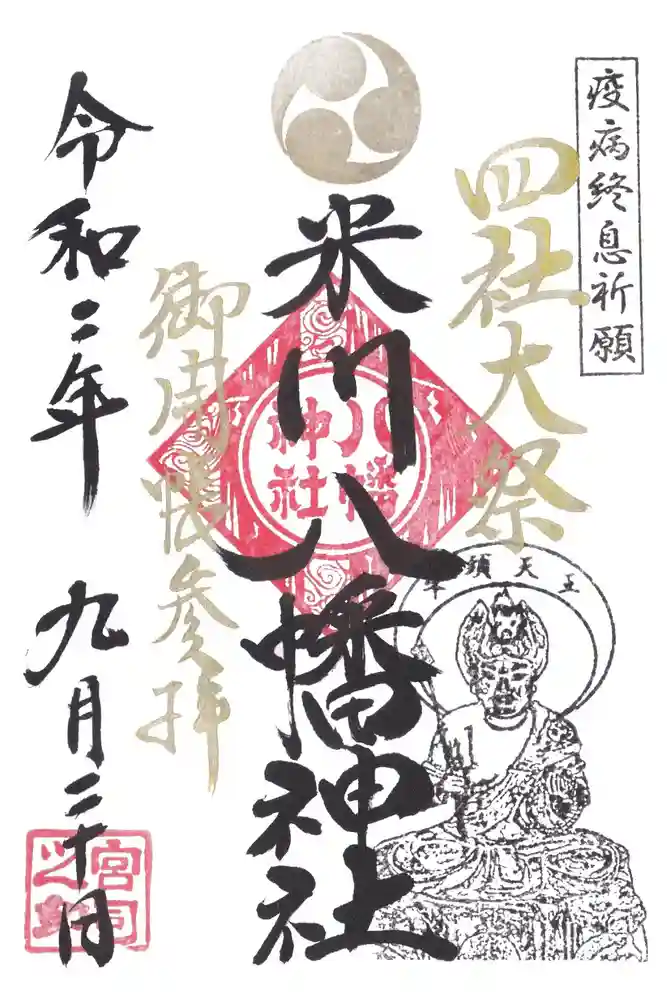 疫病終息祈願
四社大祭
米川八幡神社
八幡
神社
御開帳参拝
令和二年 九月二十日
牛頭天王
宮司